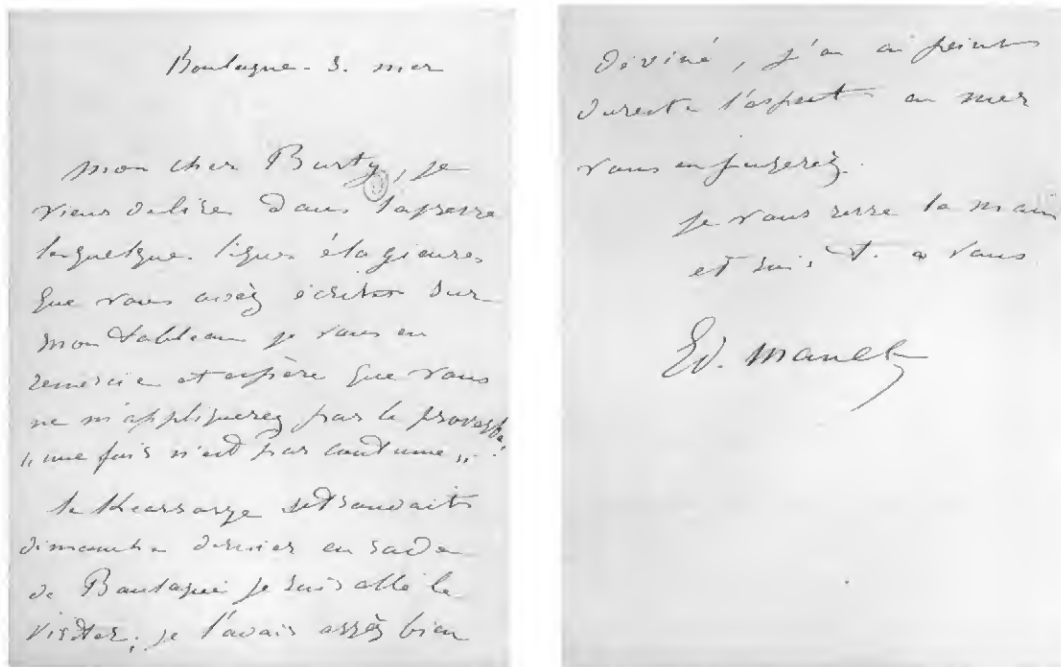 Boulogne-S. mer
Mon cher Burty, je
viens de lire dans la presse
les quelques lignes élogieuses
que vous avez écrites sur
mon tableau je vous en
remercie et espère que vous
ne m'appliquerez pas le proverbe,
"une fois n'est pas coutume".
le Kearsarge se trouvait
dimanche dernier en rade
de Boulogne je suis allé le
visiter. je l'avais assez bien
deviné, j'en ai peint
l'aspect en mer
vous en jugerez.
je vous serre la main
et suis t. a vous
Ed. Manet